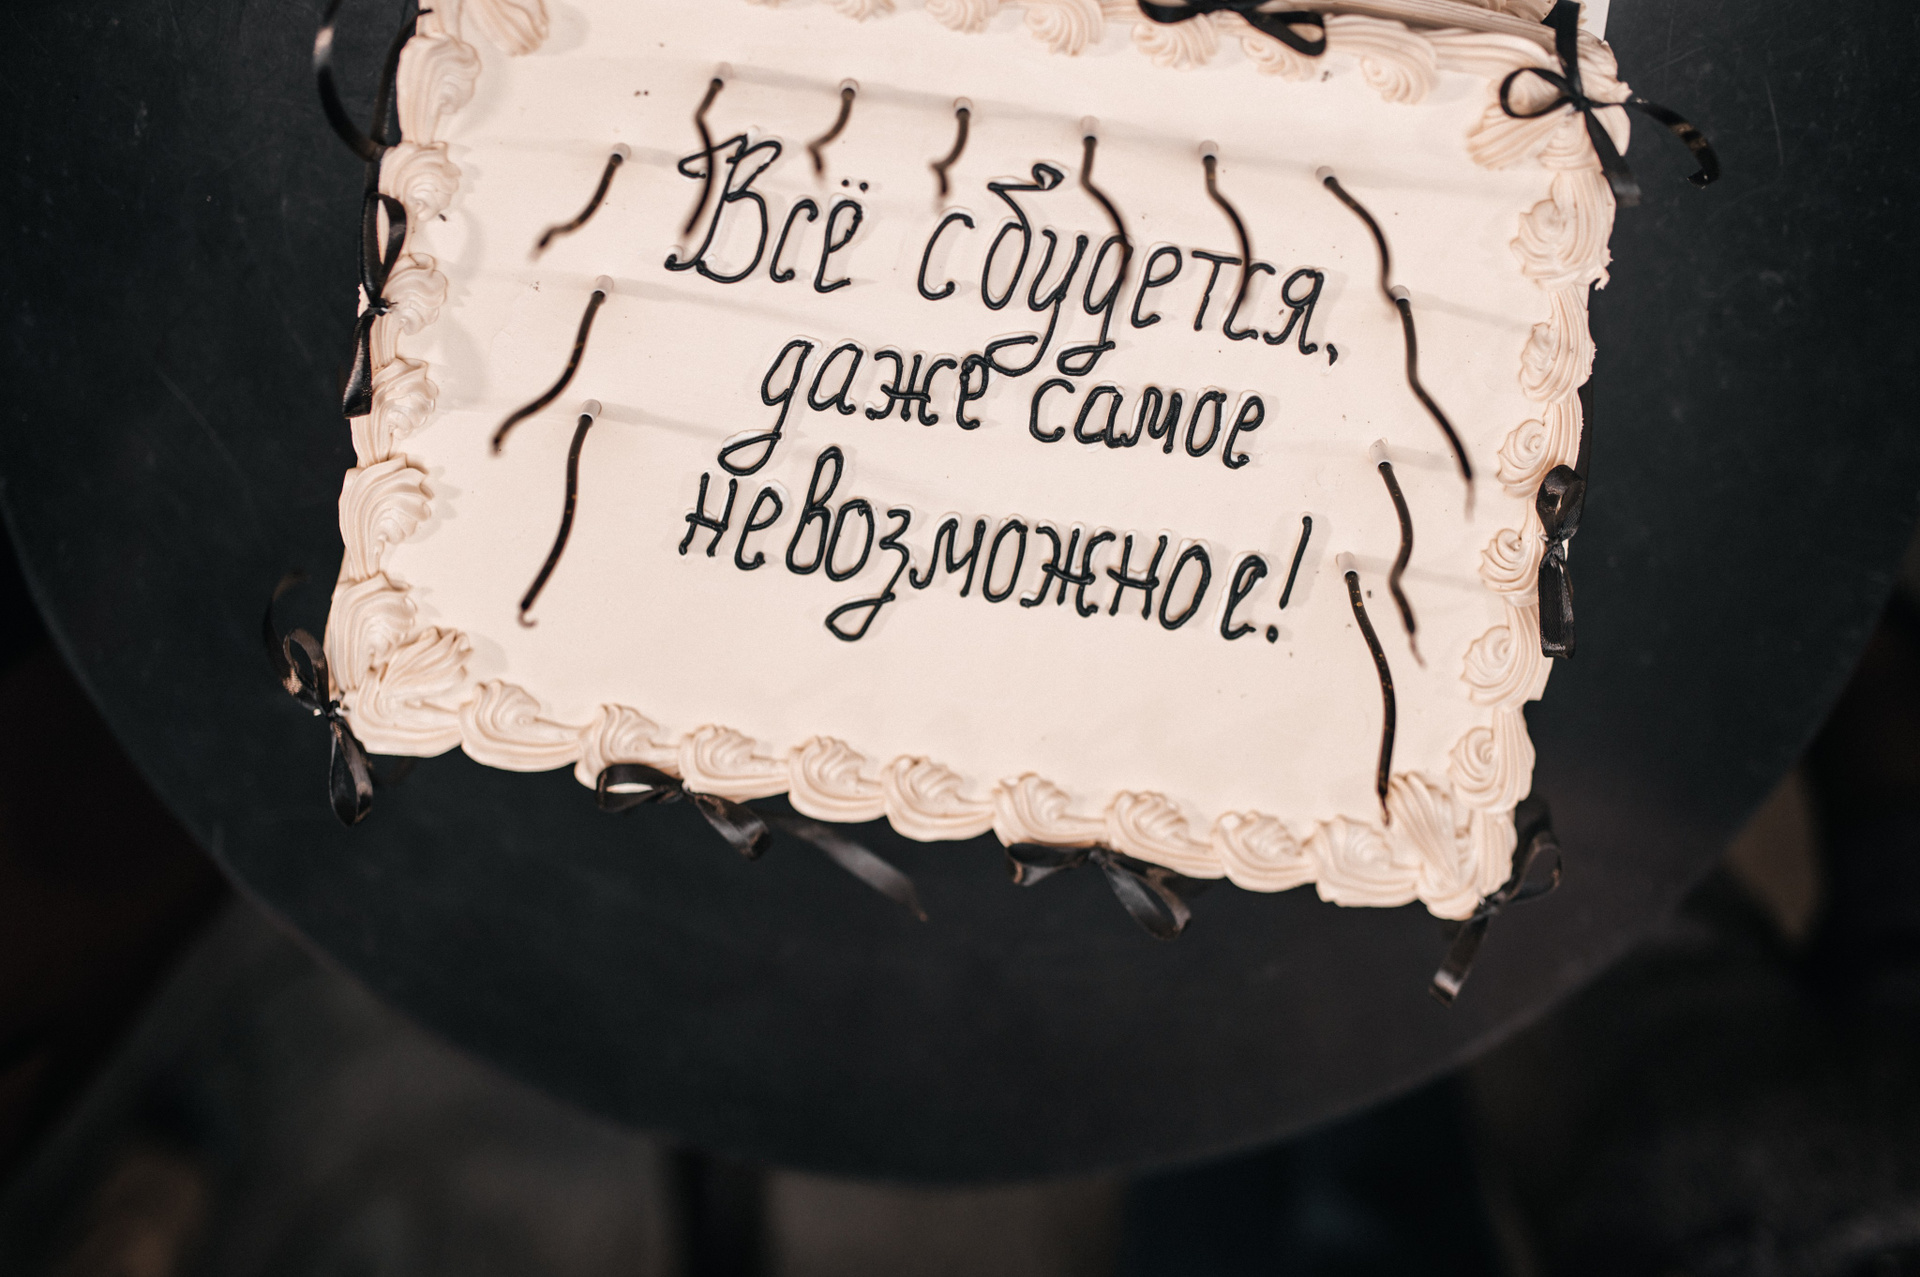 Всё сбудется,
даже самое
невозможное!